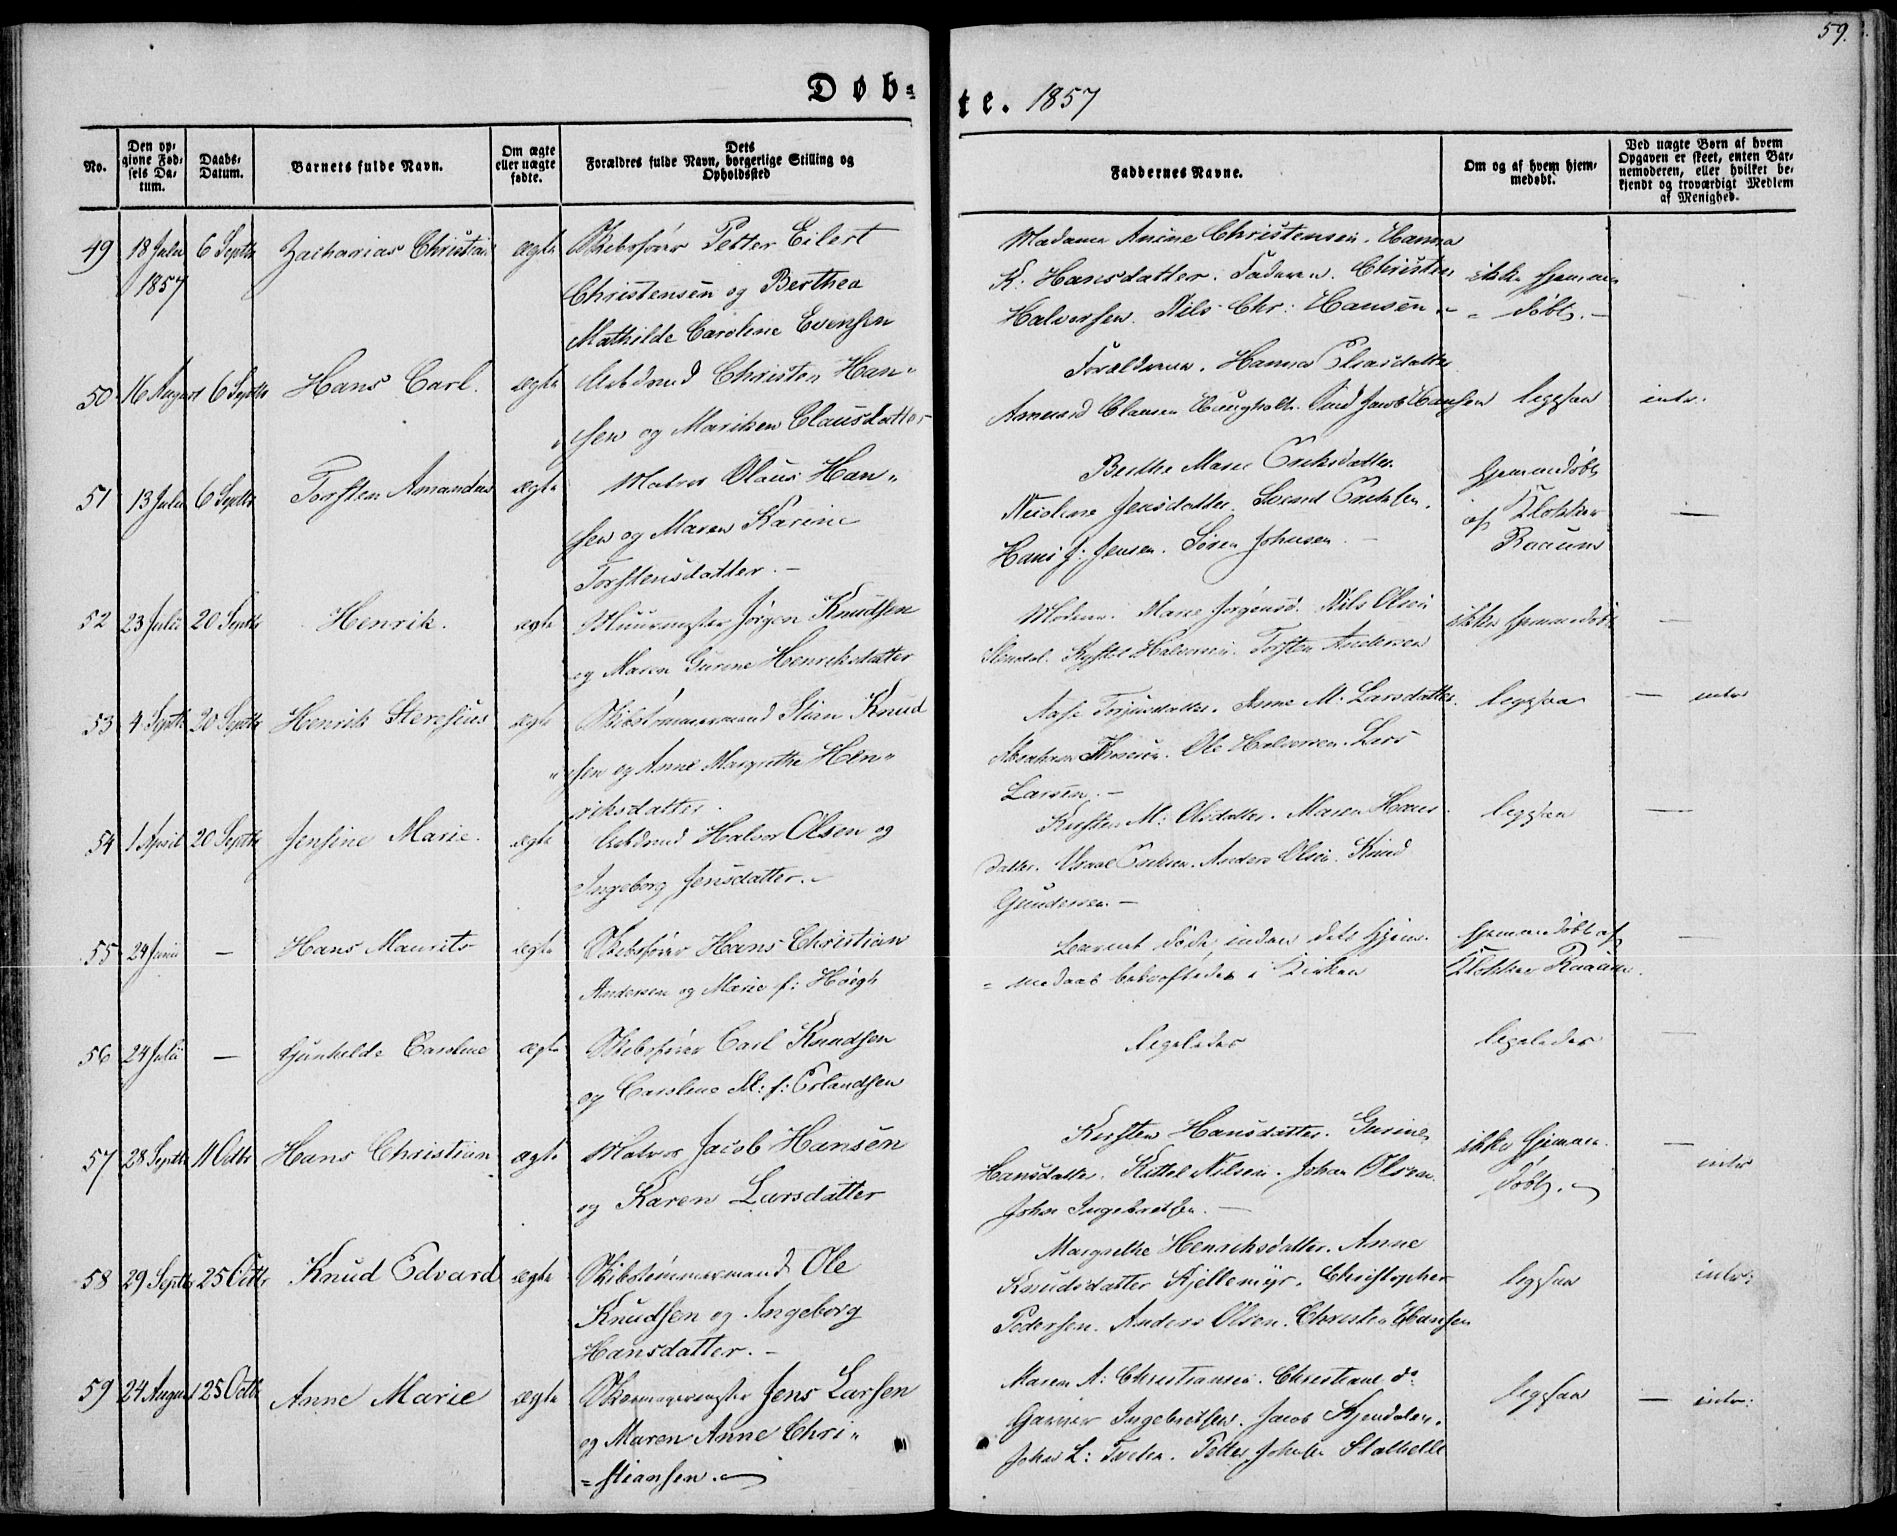 59.
Døb-
te. 1857
No.
Den op-
givne Fød-
sels Da-
tum.
Daabs-
Datum.
Barnets fulde Navn.
Om ægte
eller uægte
fødte.
Dets
Forældres fulde Navn, borgerlige Stilling og
Opholdssted
Faddernes Navne.
Om og af hvem hjem-
medøbt.
Ved uægte Børn af hvem
Opgaven er skeet, enten Bar-
nemoderen, eller hvilket be-
kjendt og troværdigt Medlem
af Menighed.
49 18 Julii 6 Septbr Zacharias Christian ægte Skibsfører Petter Eilert
1857 Christensen og Berthea
Mathilde Caroline Evensen
Madame Anine Christensen. Hanna
K. Hansdatter. Faderen. Christen
Halvorsen. Nils Chr: Hansen
ikke hjemme
døbt.
50 16 August 6 Septbr Hans Carl. ægte Arbdmd Christen Han-
sen og Mariken Clausdatter
Forældrene. Hanna
Amund Clausen Haugholt. Jacob Hansen
ligesaa intr.
51 13 Julii 6 Septbr Torsten Amandus ægte Matros Olaus Han-
sen og Maren Karine
Torstensdatter.
Berthe Marie Eriksdatter
Nicoline Jensdatter. Svend Eriksen.
Hans J: Jensen. Søren Johnsen.
hjemmedøbt
af Klokker
Raaum
52 23 Julii 20 Septbr Henrik. ægte Muurmester Jørgen Knudsen
og Maren Gurine Henriksdatter
Moderen. Maren Jørgensd. Nils Olsen
Kystel Halvorsen. Torsten Andersen
ikke hjemmedøbt
53 4 Septbr 20 Septbr Henrik Steresius ægte Skibstømmermand Stian Knud
sen og Anne Margrethe Hen-
riksdatter.
Aase Torjusdatter. Anne M. Larsdatter.
Abraham. Ole Halvorsen. Lars
Larsen.
ligesaa intr
54 1 April 20 Septbr Jensine Marie. ægte Arbdmd Halvor Olsen og
Ingeborg Jensdatter.
Kirsten M: Olsdatter. Maren Hans
datter. Anders Olsen. Knud
Gundersen.
ligesaa
55 24 Junii — Hans Maurits ægte Skibsfører Hans Christian
Andersen og Marie f: Høegh
Barnet døde, inden dets hjem-
medaab bekræftedes i Kirken
hjemmedøbt af
Klokker Raaum.
56 24 Julii — Gunhilde Caroline ægte Skibsfører Carl Knudsen
og Caroline M: f: Erlandsen
ligeledes
ligeledes
57 28 Septbr 11 Octbr Hans Christian ægte Matros Jacob Hansen
og Karen Larsdatter
Kirsten Hansdatter. Gurine
Hansdatter. Kittel Nilsen. Johan Olsen.
Johan Ingebretsen.
ikke hjemme
døbt. intr
58 29 Septbr 25 Octbr Knud Edvard ægte Skibstømmermand Ole
Knudsen og Ingeborg
Hansdatter.
Margrethe Henriksdatter. Anne
Knudsdatter Kjellemyr. Christopher
Pedersen. Anders Olsen. Christen Hansen
ligesaa intr:
59 24 August 25 Octbr Anne Marie ægte Skomagermester Jens Larsen
og Maren Anne Chri-
stiansen.
Maren A: Christiansen. Christiane do
Ingebretsen. Jacob
Johan L: Tveten. Petter Stathelle
ligesaa intr: